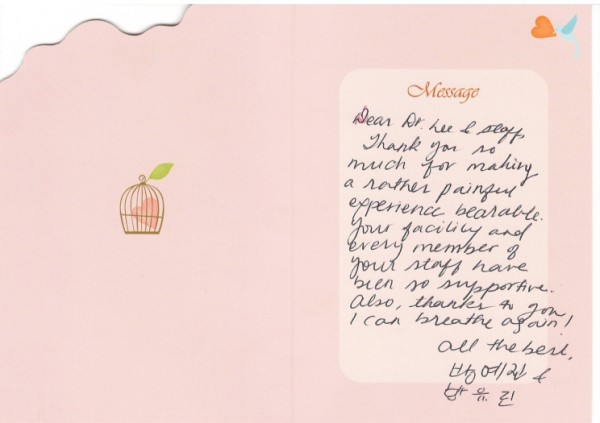 Message
Dear Dr. Lee & staff,
Thank you so
much for making
a rather painful
experience bearable.
Your facility and
every member of
your staff have
been so supportive.
Also, thanks to you
I can breathe again!
All the best,
박예진 &
박유진